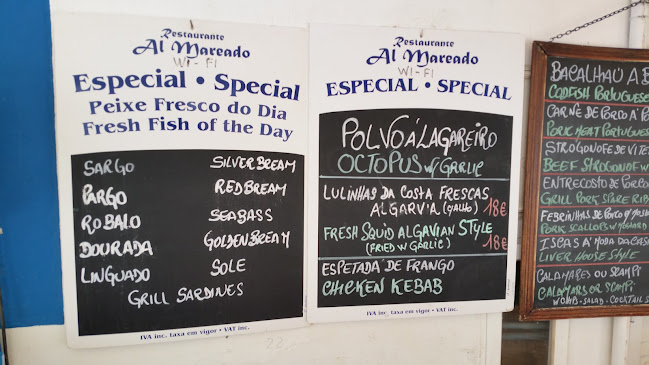 Restaurante
Al Mareado
WI-FI
Especial • Special
Peixe Fresco do Dia
Fresh Fish of the Day
SARGO SILVER BREAM
PARGO RED BREAM
ROBALO SEABASS
DOURADA GOLDEN BREAM
LINGUADO SOLE
GRILL SARDINES
IVA inc. taxa em vigor • VAT inc.
Restaurante
Al Mareado
WI-FI
ESPECIAL • SPECIAL
POLVO Á LAGAREIRO
OCTOPUS w/ GARLIC
LULINHAS DA COSTA FRESCAS
ALGARVIA (ALHO) 18€
FRESH SQUID ALGAVIAN STYLE
(FRIED W GARLIC) 18€
ESPETADA DE FRANGO
CHICKEN KEBAB
IVA inc. taxa em vigor • VAT inc.
BACALHAU À B
CODFISH PORTUGUESE
CARNE DE PORCO À PO
PORK MEAT PORTUGUES
STROGONOFE DE VITE
BEEF STROGONOF W
ENTRECOSTO DE PORCO
GRILL PORK SPARE RIB
FEBRINHAS DE PORCO
PORK SCALLOPS W MOR
ISCAS À MODA DA CASA
LIVER HOUSE STYLE
CALAMARES OU SCAMPI
CALAMARS OR SCAMPI
SALAD - COCKTAIL S